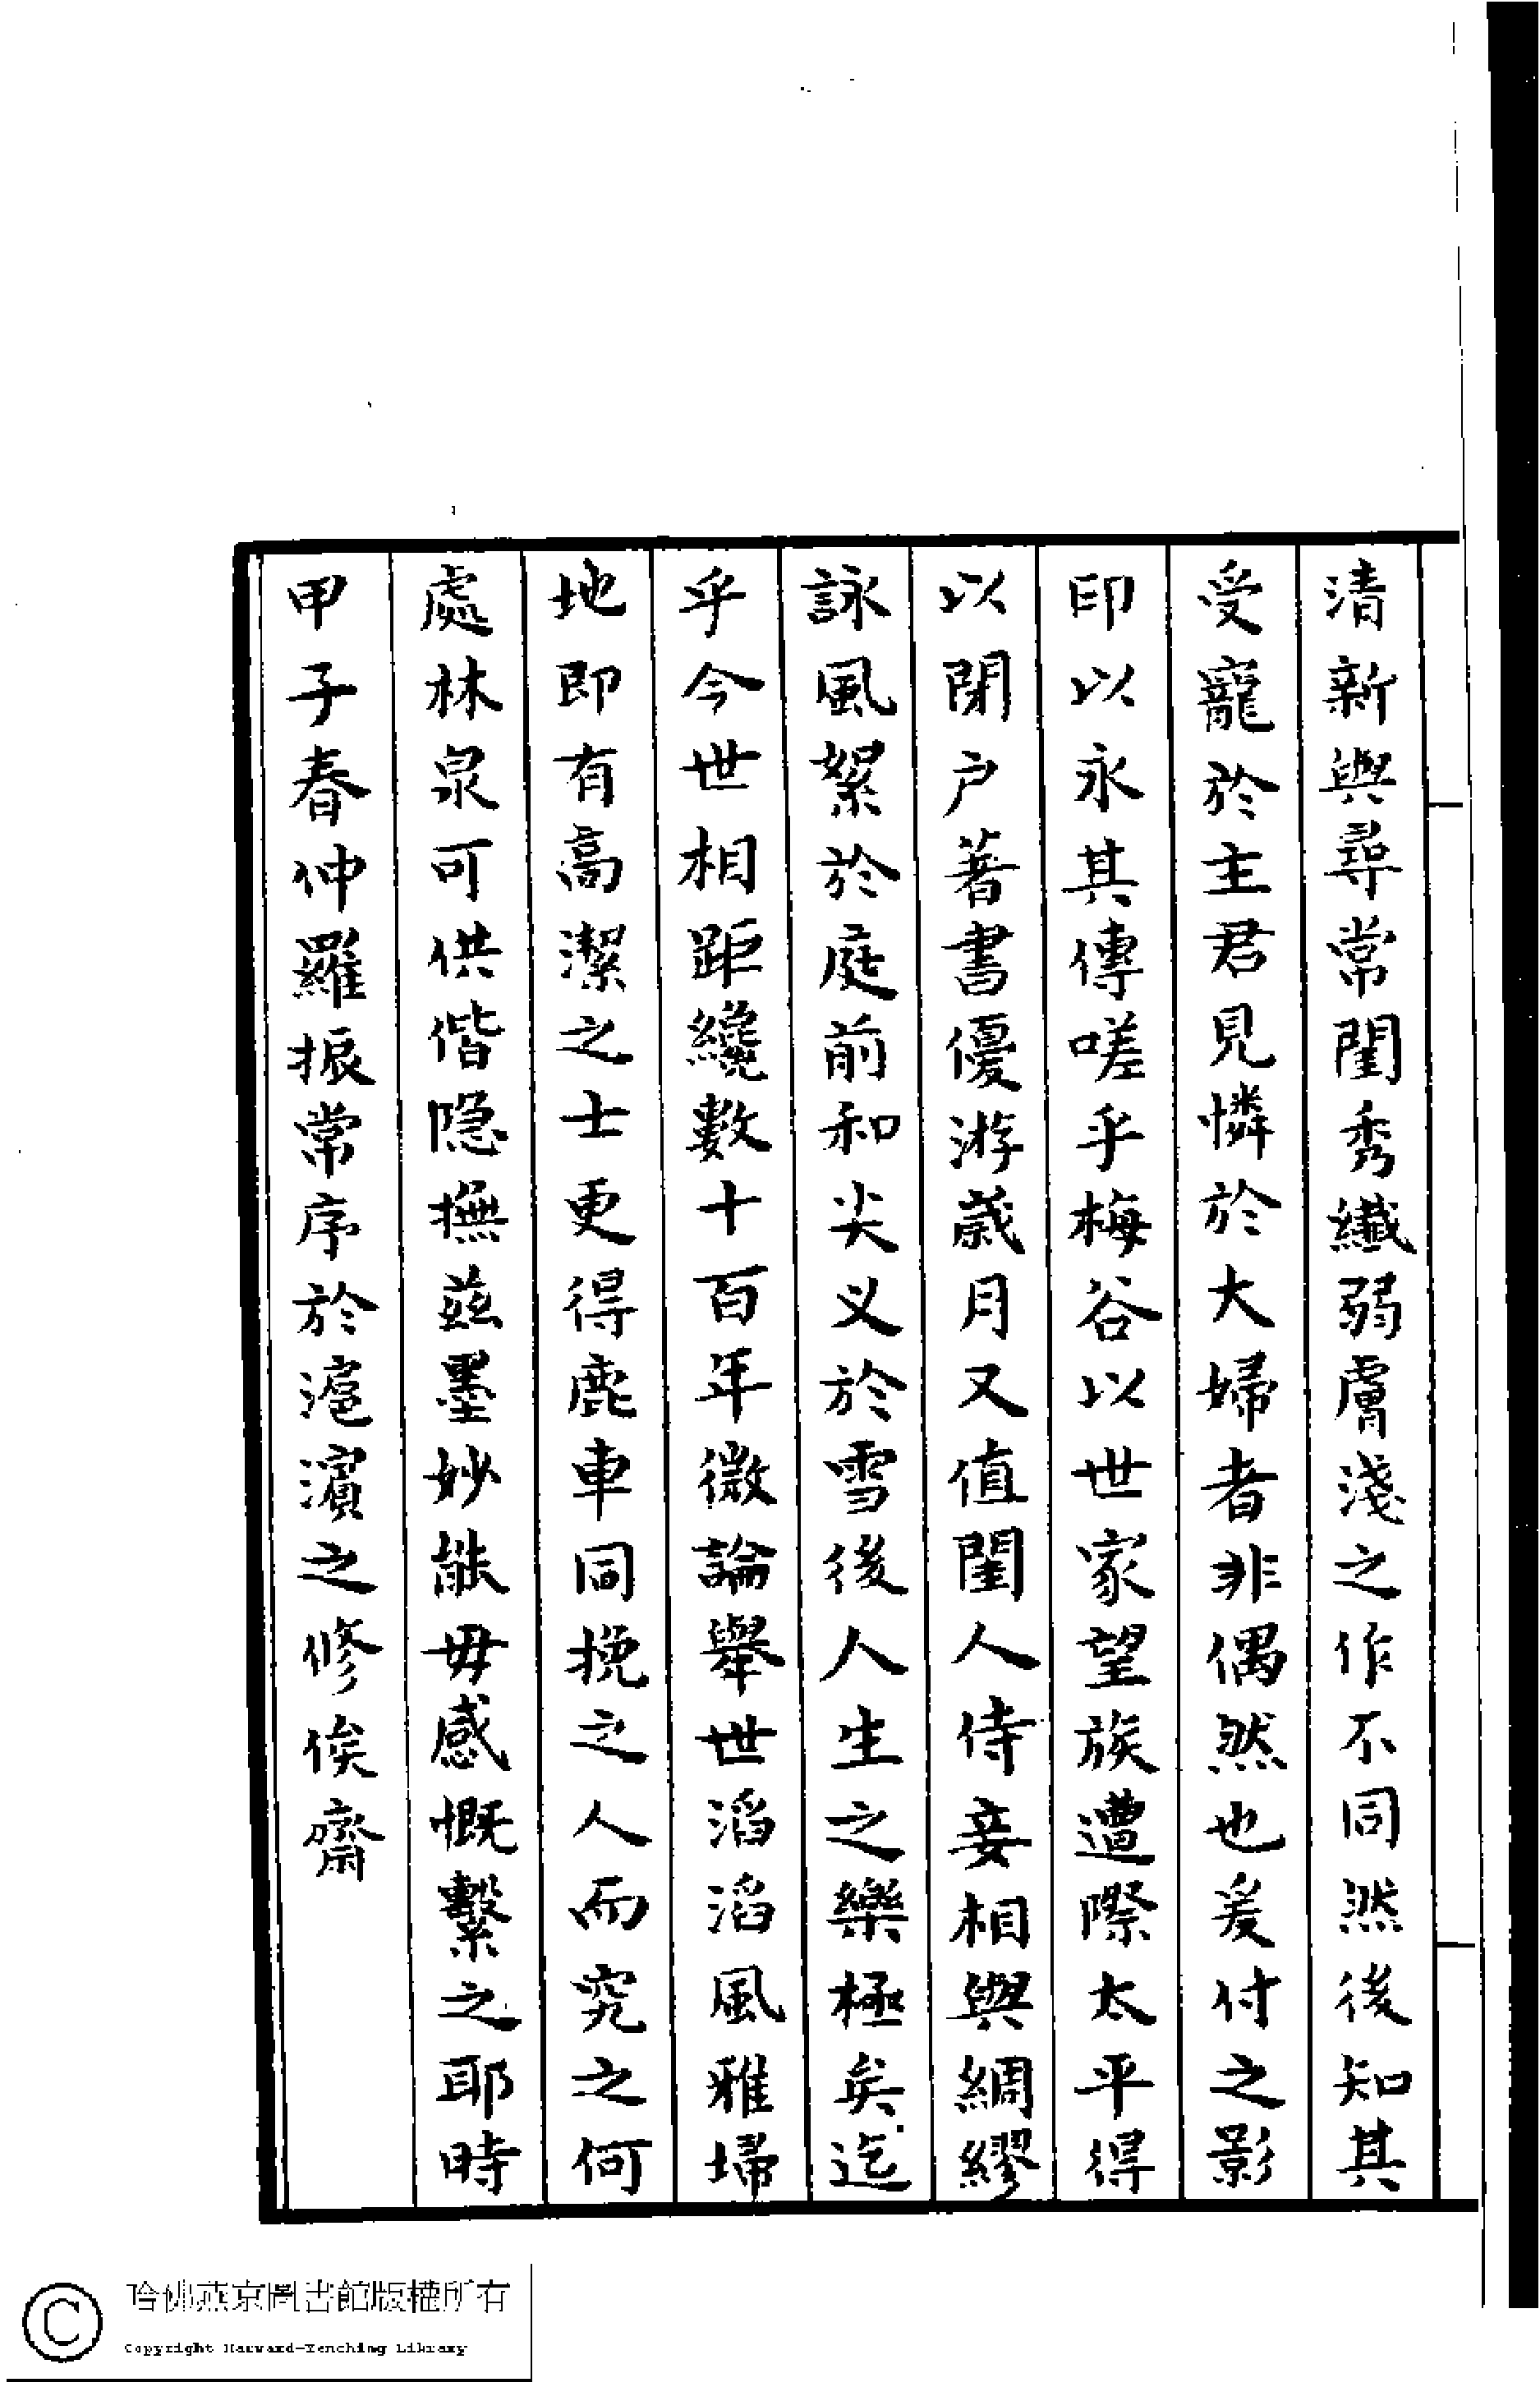 清新與尋常閨秀纖弱膚淺之作不同然後知其
受寵於主君見憐於大婦者非偶然也爰付之影
印以永其傳嗟乎梅谷以世家望族遭際太平得
以閉户著書優游歲月又值閨人侍妾相與綢繆
詠風絮於庭前和尖叉於雪後人生之樂極矣迄
乎今世相距纔數十百年微論舉世滔滔風雅埽
地即有高潔之士更得鹿車同挽之人而究之何
處林泉可供偕隐撫茲墨妙能毋感慨繫之耶時
甲子春仲羅振常序於滬濱之修俟齋
哈佛燕京圖書館版權所有
Copyright Harvard-Yenching Library